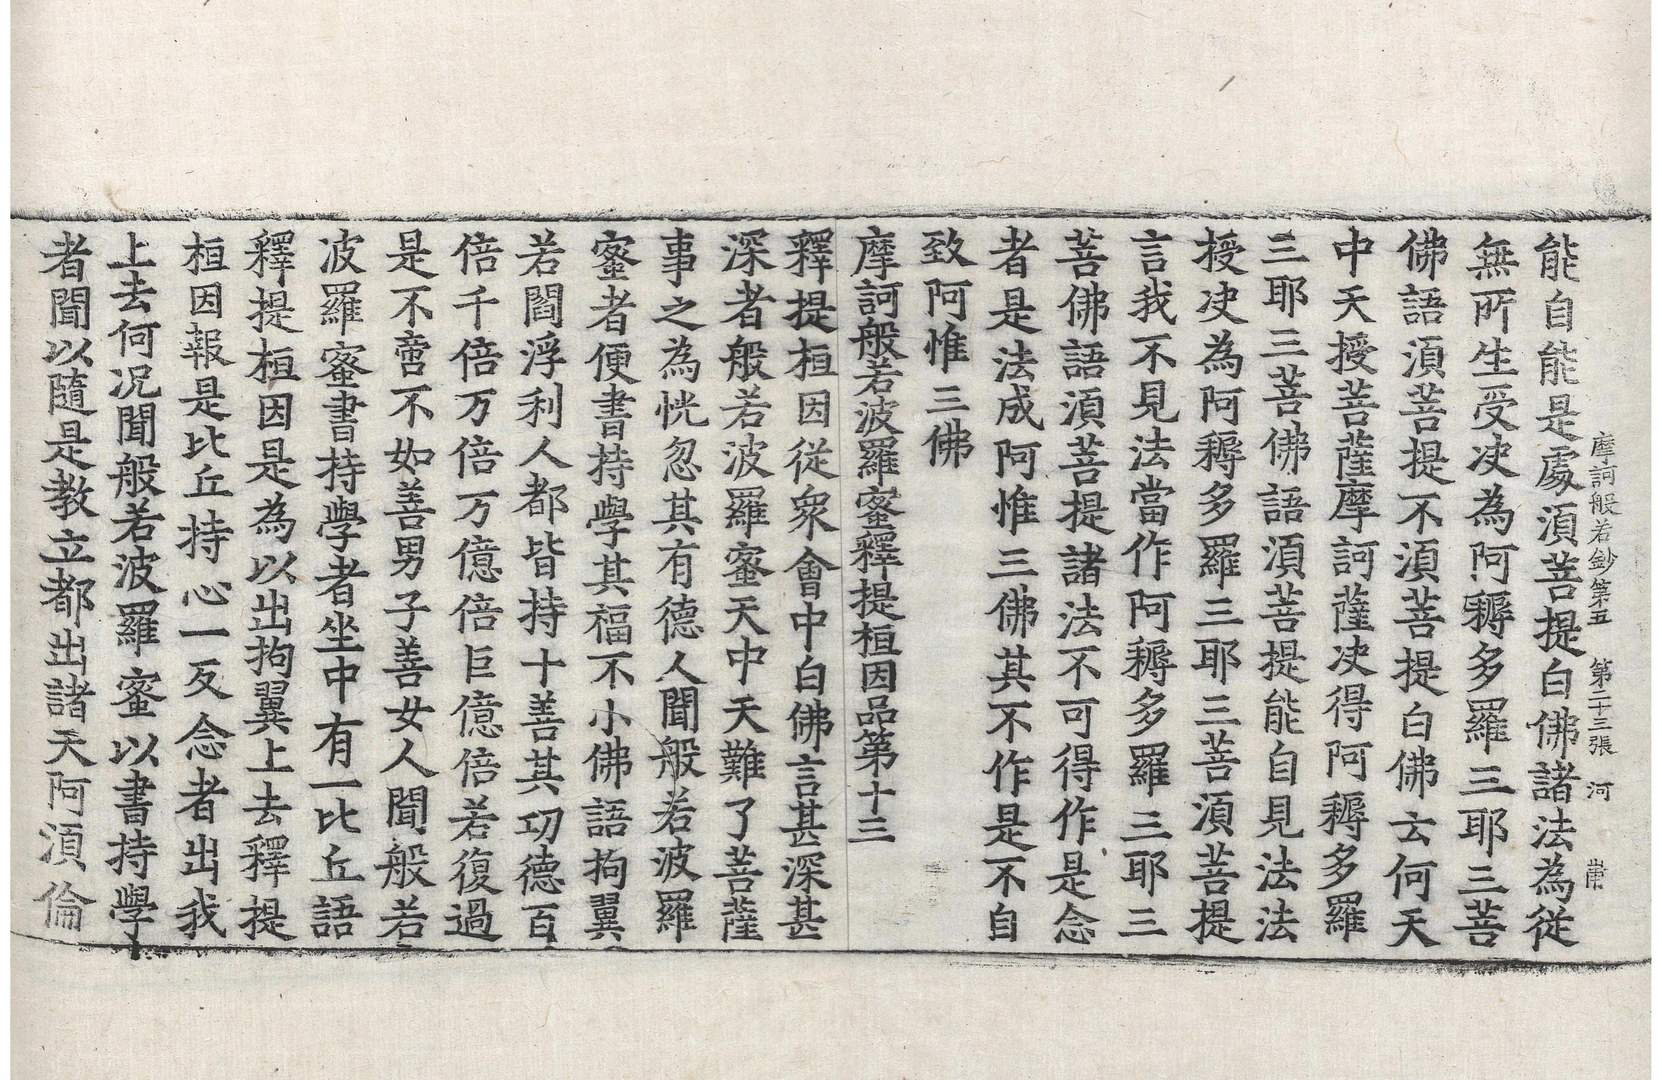 摩訶般若鈔第五　第二十三張　河
能自能是處須菩提白佛諸法為從
無所生受决為阿耨多羅三耶三菩
佛語須菩提不須菩提白佛云何天
中天授菩薩摩訶薩决得阿耨多羅
三耶三菩佛語須菩提能自見法法
授决為阿耨多羅三耶三菩須菩提
言我不見法當作阿耨多羅三耶三
菩佛語須菩提諸法不可得作是念
者是法成阿惟三佛其不作是不自
致阿惟三佛
摩訶般若波羅蜜釋提桓因品第十三
釋提桓因從衆會中白佛言甚深甚
深者般若波羅蜜天中天難了菩薩
事之為恍忽其有德人聞般若波羅
蜜者便書持學其福不小佛語拘翼
若閻浮利人都皆持十善其功德百
倍千倍万倍万億倍巨億倍若復過
是不啻不如善男子善女人聞般若
波羅蜜書持學者坐中有一比丘語
釋提桓因是為以出拘翼上去釋提
桓因報是比丘持心一反念者出我
上去何况聞般若波羅蜜以書持學
者聞以隨是教立都出諸天阿須倫